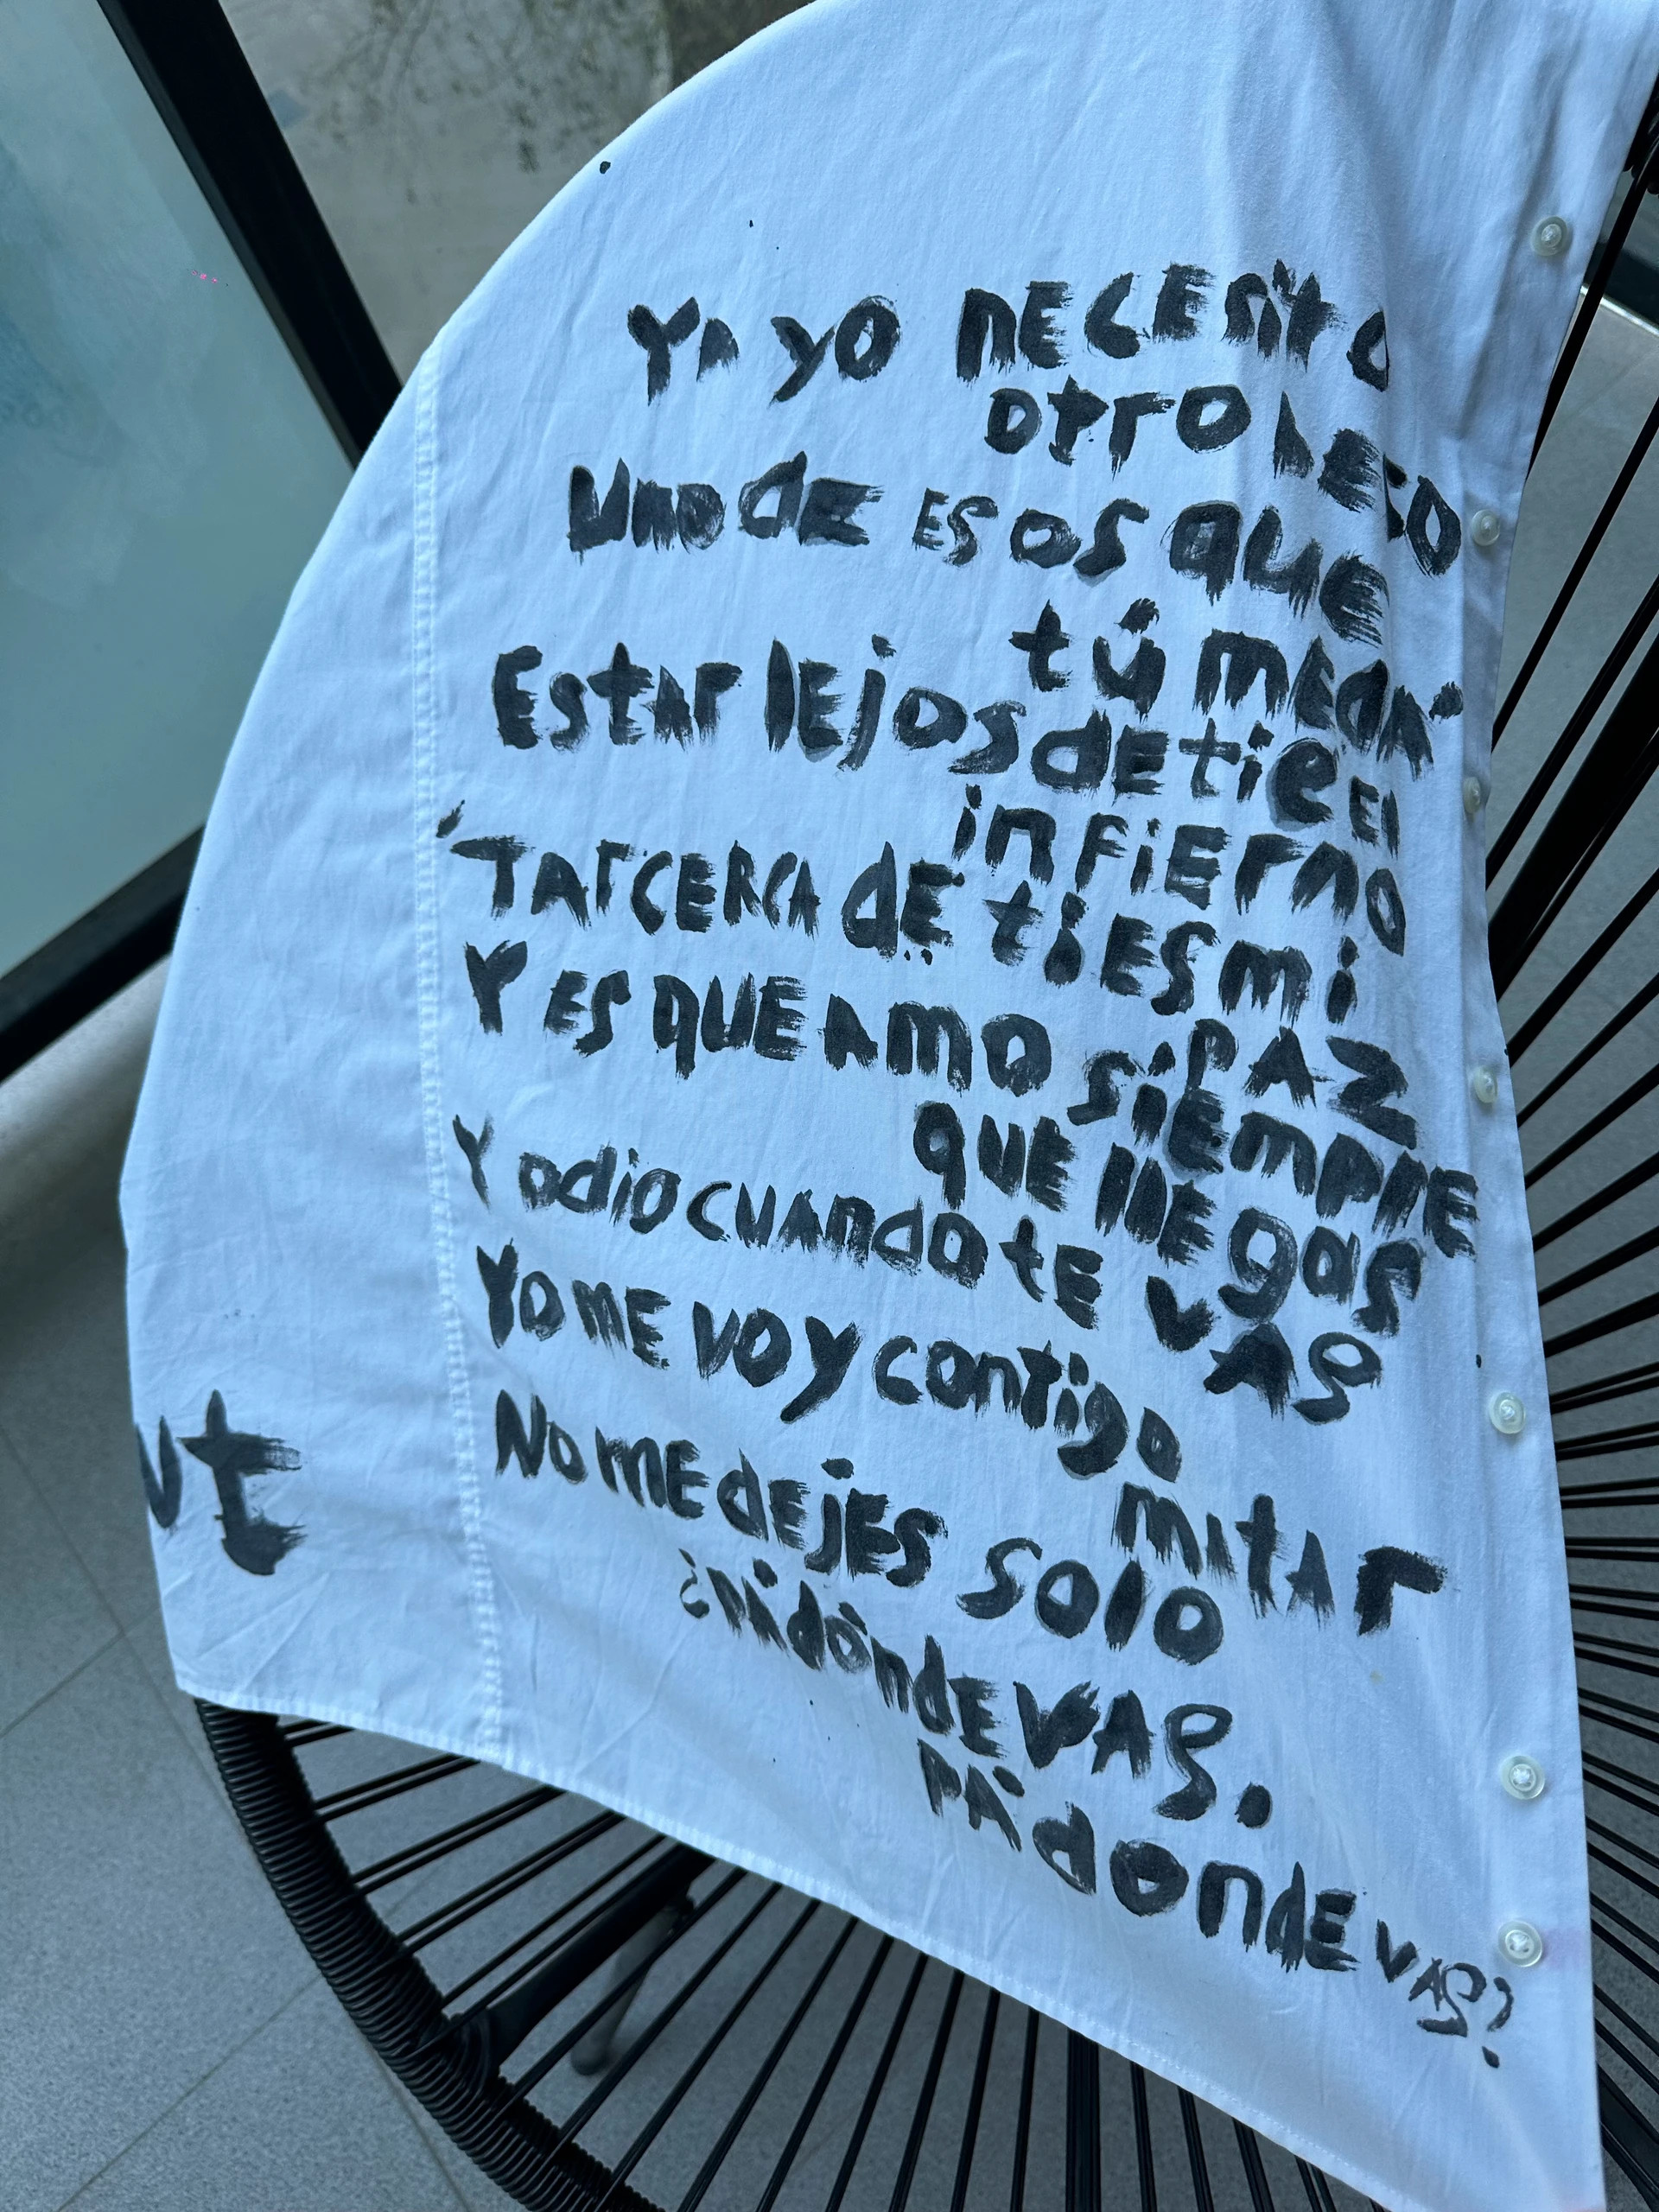 Ya yo necesito
otro beso
Uno de esos que
tú me da'
Estar lejos de ti e' el
infierno
'Tar cerca de ti es mi
paz
Y es que amo siempre
que llegas
Y odio cuando te vas
Yo me voy contigo
mitar
No me dejes solo
¿pa' dónde vas.
pa' donde vas?